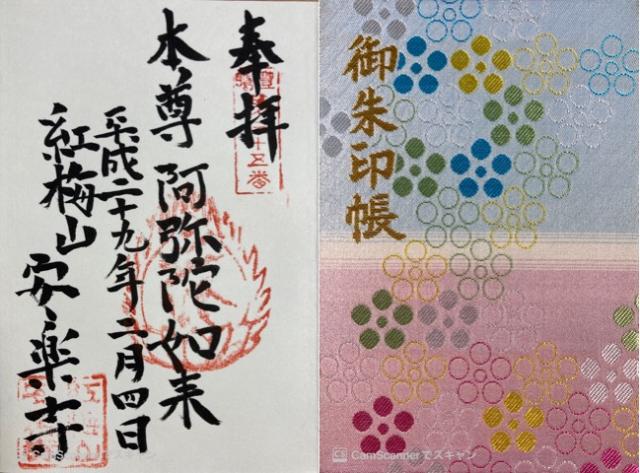 奉拝
本尊 阿弥陀如来
平成二十九年二月四日
紅梅山
安楽寺
御朱印帳
CS CamScannerでスキャン
CS CamScannerでスキャン